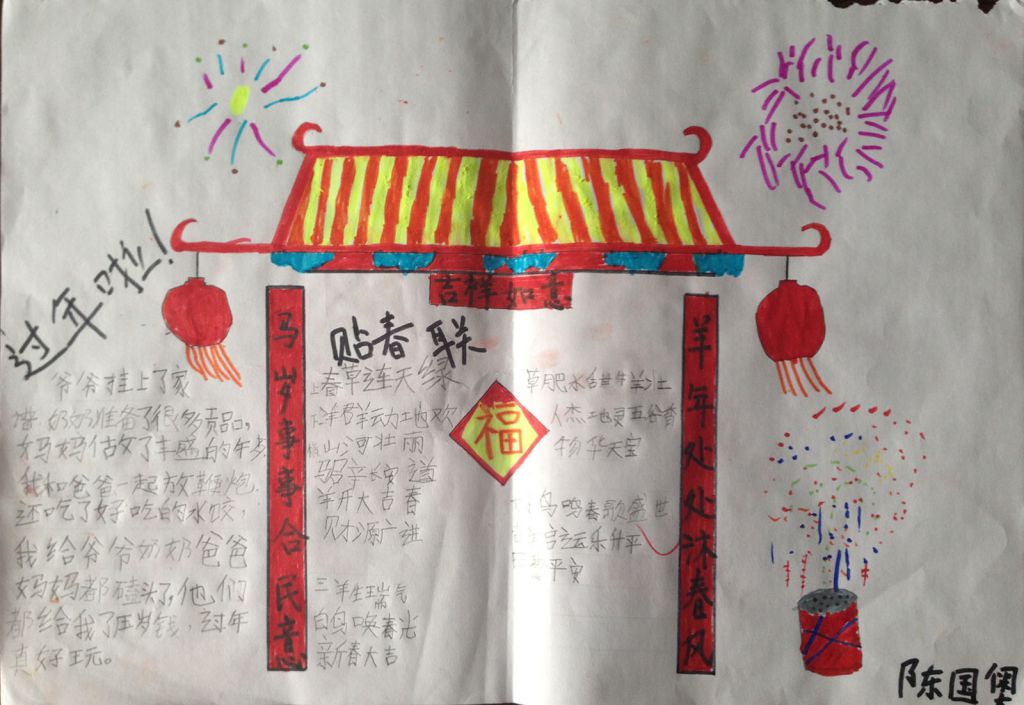 过年啦!
吉祥如意
马岁事事合民意
羊年处处沐春风
福
贴春联
爷爷挂上了家
谱,奶奶准备了很多贡品,
妈妈妈做了丰盛的年
我和爸爸一起放鞭炮,
还吃了好吃的水饺,
我给爷爷奶奶爸爸
妈妈都磕头了,他们
都给我了压岁钱,过年
真好玩。
上春草连天绿
羊群羊动地欢
山河壮丽
长安道
羊开大吉春
财源广进
三羊生瑞气
百鸟唤春光
新春大吉
草肥水
人杰地灵五谷香
物华天宝
鸟鸣春歌盛世
乐升平
平安
陈国